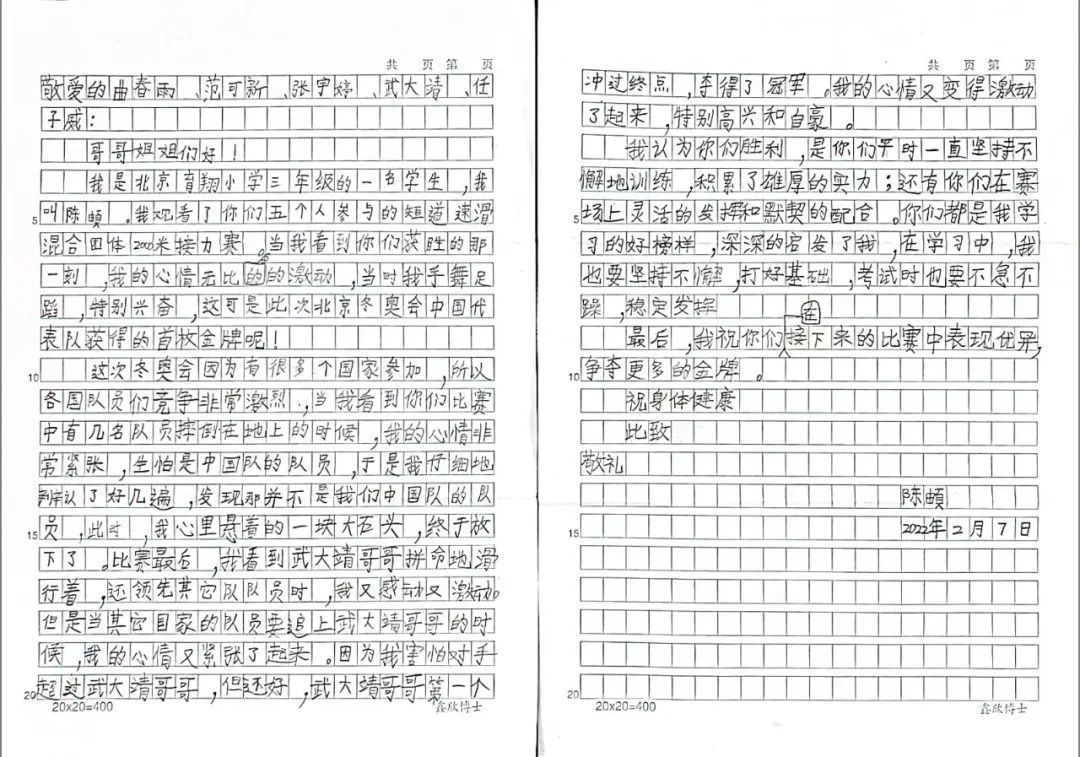 共 页 第 页
敬爱的曲春雨、范可新、张宇婷、武大靖、任
子威：
哥哥姐姐们好！
我是北京育翔小学三年级的一名学生，我
5
叫陈頔。我观看了你们五个人参与的短道速滑
混合团体2000米接力赛，当我看到你们获胜的那
一刻，我的心情无比的的激动，当时我手舞足
蹈，特别兴奋，这可是此次北京冬奥会中国代
表队获得的首枚金牌呢！
10
这次冬奥会因为有很多个国家参加，所以
各国队员们竞争非常激烈，当我看到你们比赛
中有几名队员摔倒在地上的时候，我的心情非
常紧张，生怕是中国队的队员，于是我仔细地
辨认了好几遍，发现那并不是我们中国队的队
15
员，此时，我心里悬着的一块大石头，终于放
下了。比赛最后，我看到武大靖哥哥拼命地滑
行着，还领先其它队队员时，我又感动又激动
但是当其它国家的队员要追上武大靖哥哥的时
候，我的心情又紧张了起来。因为我害怕对手
20
超过武大靖哥哥，但还好，武大靖哥哥第一个
20x20=400
鑫欣博士
共 页 第 页
冲过终点，夺得了冠军。我的心情又变得激动
了起来，特别高兴和自豪。
我认为你们胜利，是你们平时一直坚持不
懈地训练，积累了雄厚的实力；还有你们在赛
5
场上灵活的发挥和默契的配合。你们都是我学
习的好榜样，深深的启发了我，在学习中，我
也要坚持不懈，打好基础，考试时也要不急不
躁，稳定发挥
在
最后，我祝你们接下来的比赛中表现优异，
10
争夺更多的金牌。
祝身体健康
此致
敬礼
陈頔
15
2022年2月7日
20
20x20=400
鑫欣博士